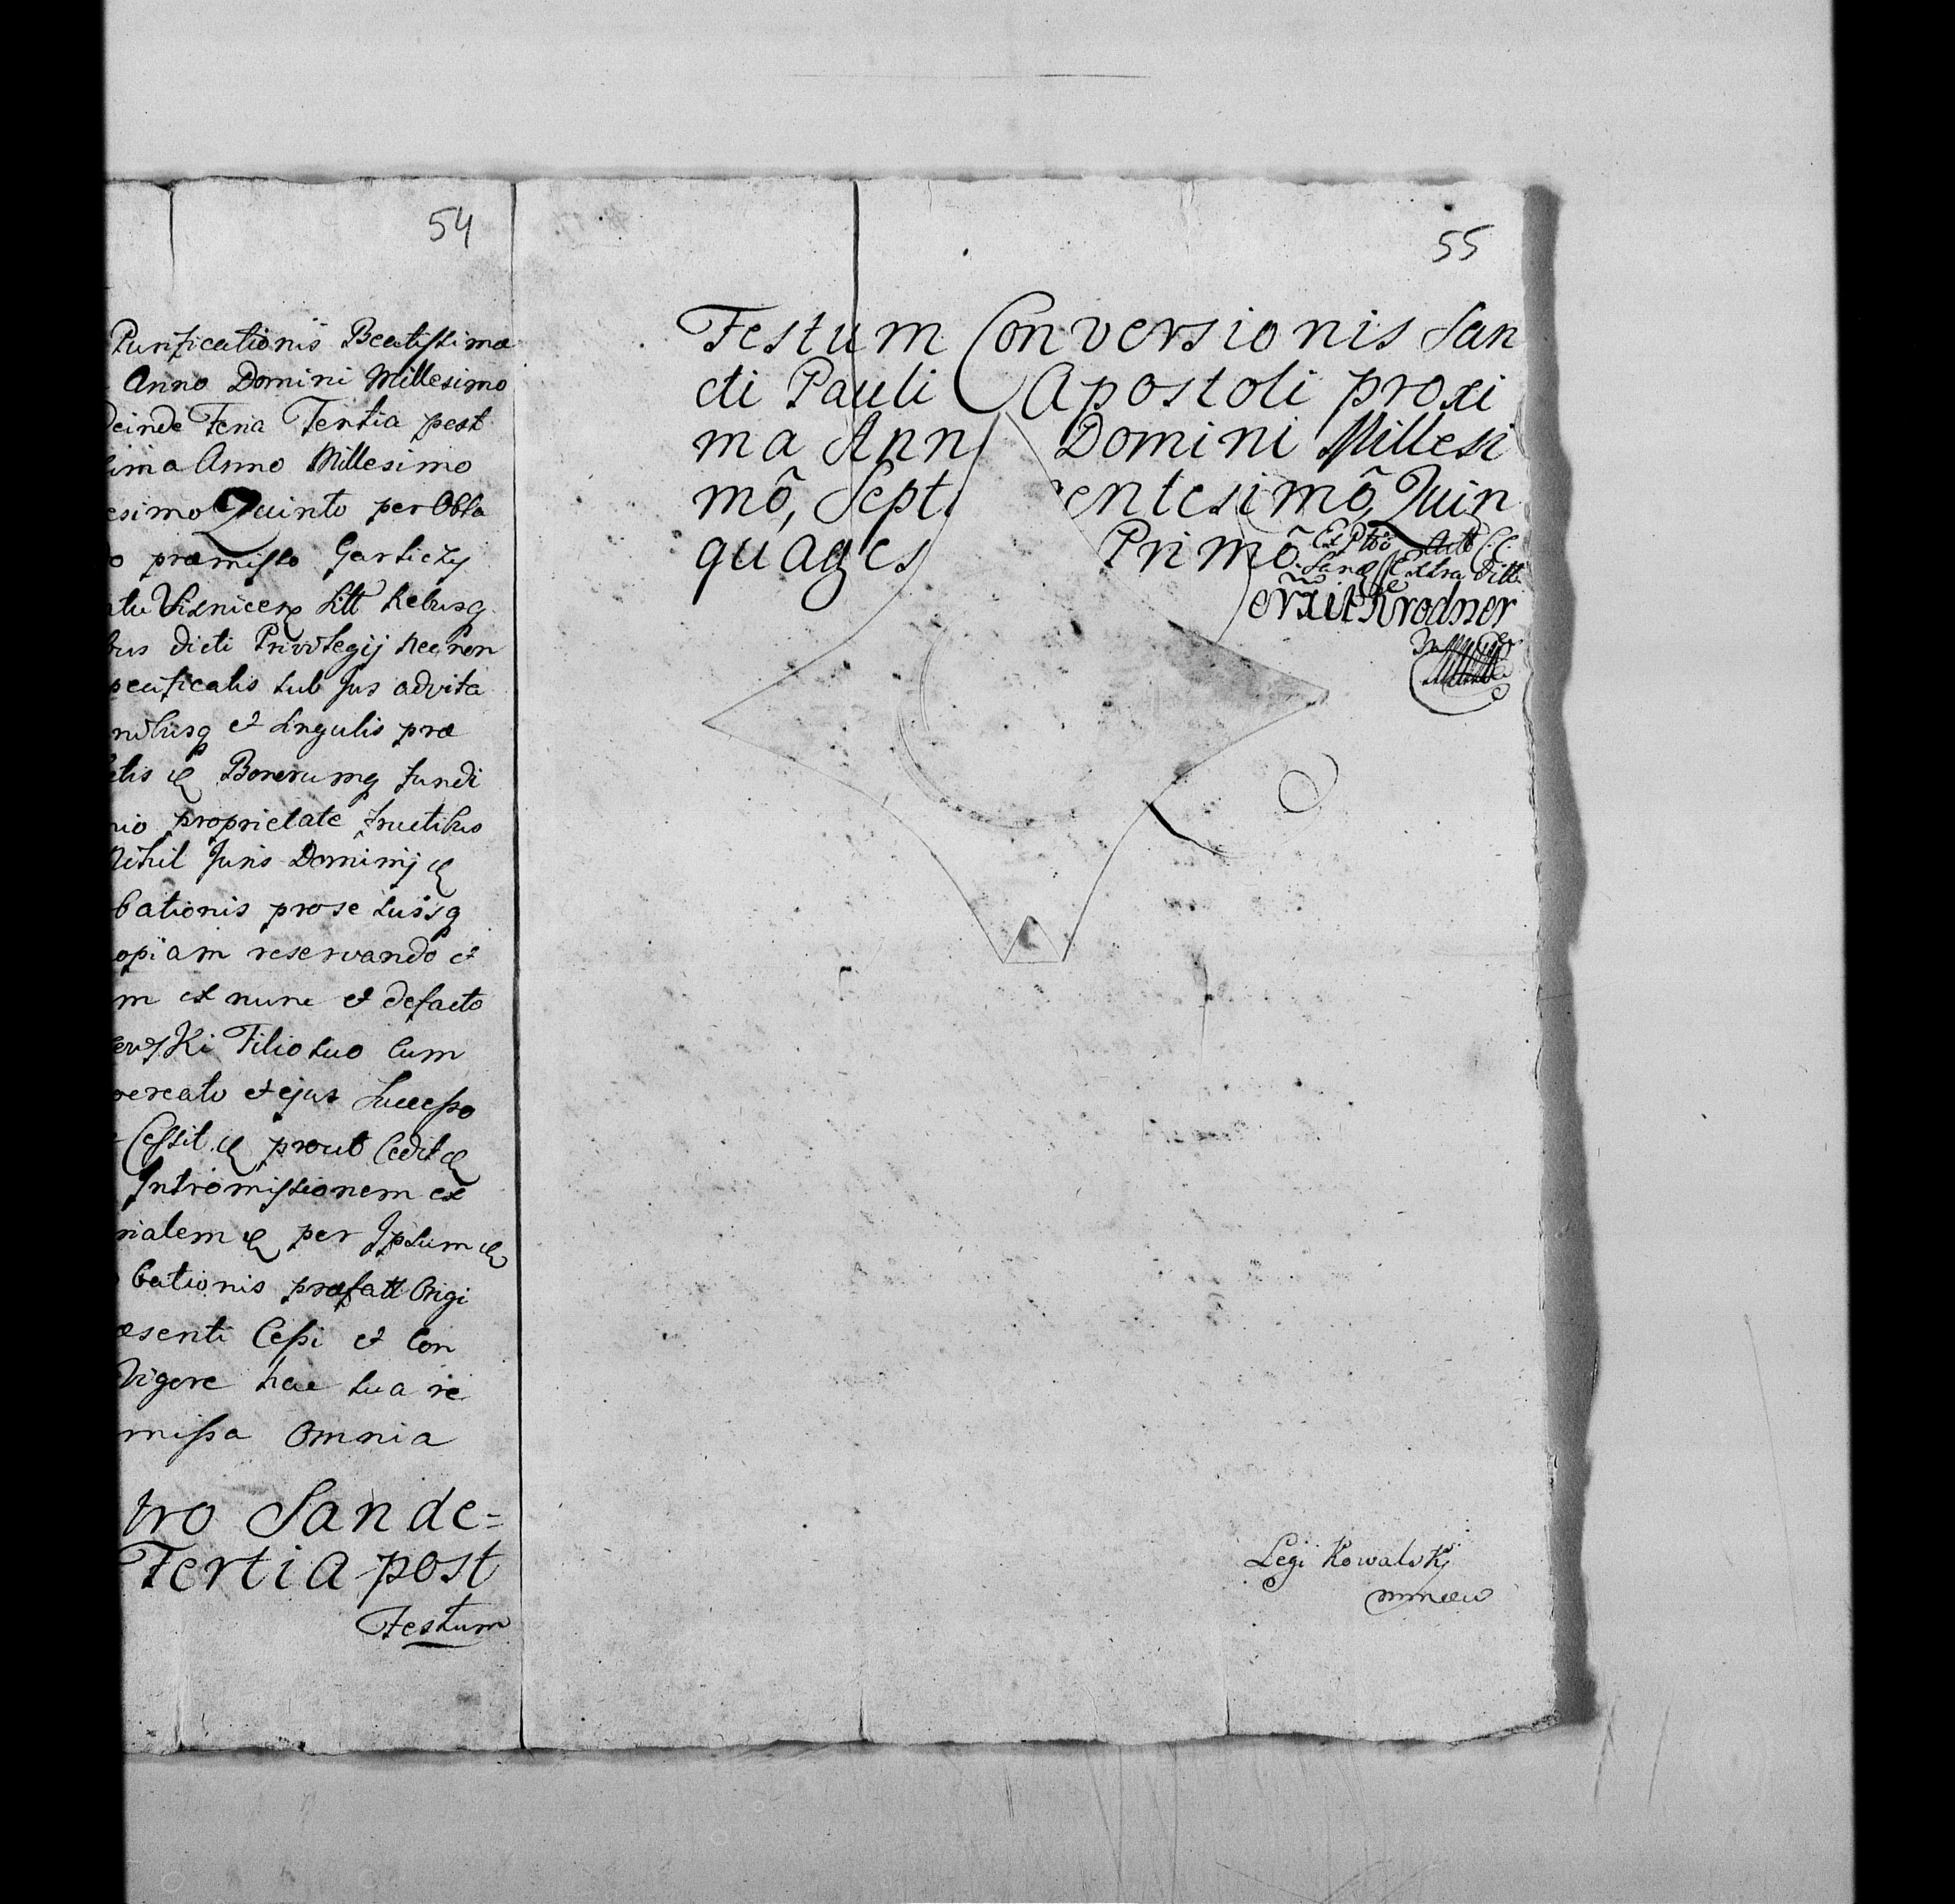 54
Purificationis Beatissimæ
Anno Domini Millesimo
Deinde Feria Tertia post
Anno Millesimo
esimo Quinto per Obla
præmisso
Litt
bus dicti Privilegij necnon
sub Jus advita
et singulis præ
Bonorumq fundi
proprietate fructibus
Nihil Juris Dominij
bationis pro se suisq
opiam reservando et
m ex nunc et defacto
Filio suo Cum
et ejus Successo
Cessit prout Cedit
Intromissionem ex
rialem per Ipsum
bationis præfatt Origi
æsenti Cessi et Con
Vigore hac sua re
missa Omnia
tro Sande=
Tertia post
Festum
55
Festum Conversionis San
cti Pauli Apostoli proxi
ma Ann Domini Millesi
mô, Sept entesimô, Quin
quages Primô
Krodner
Legi Kowalsky